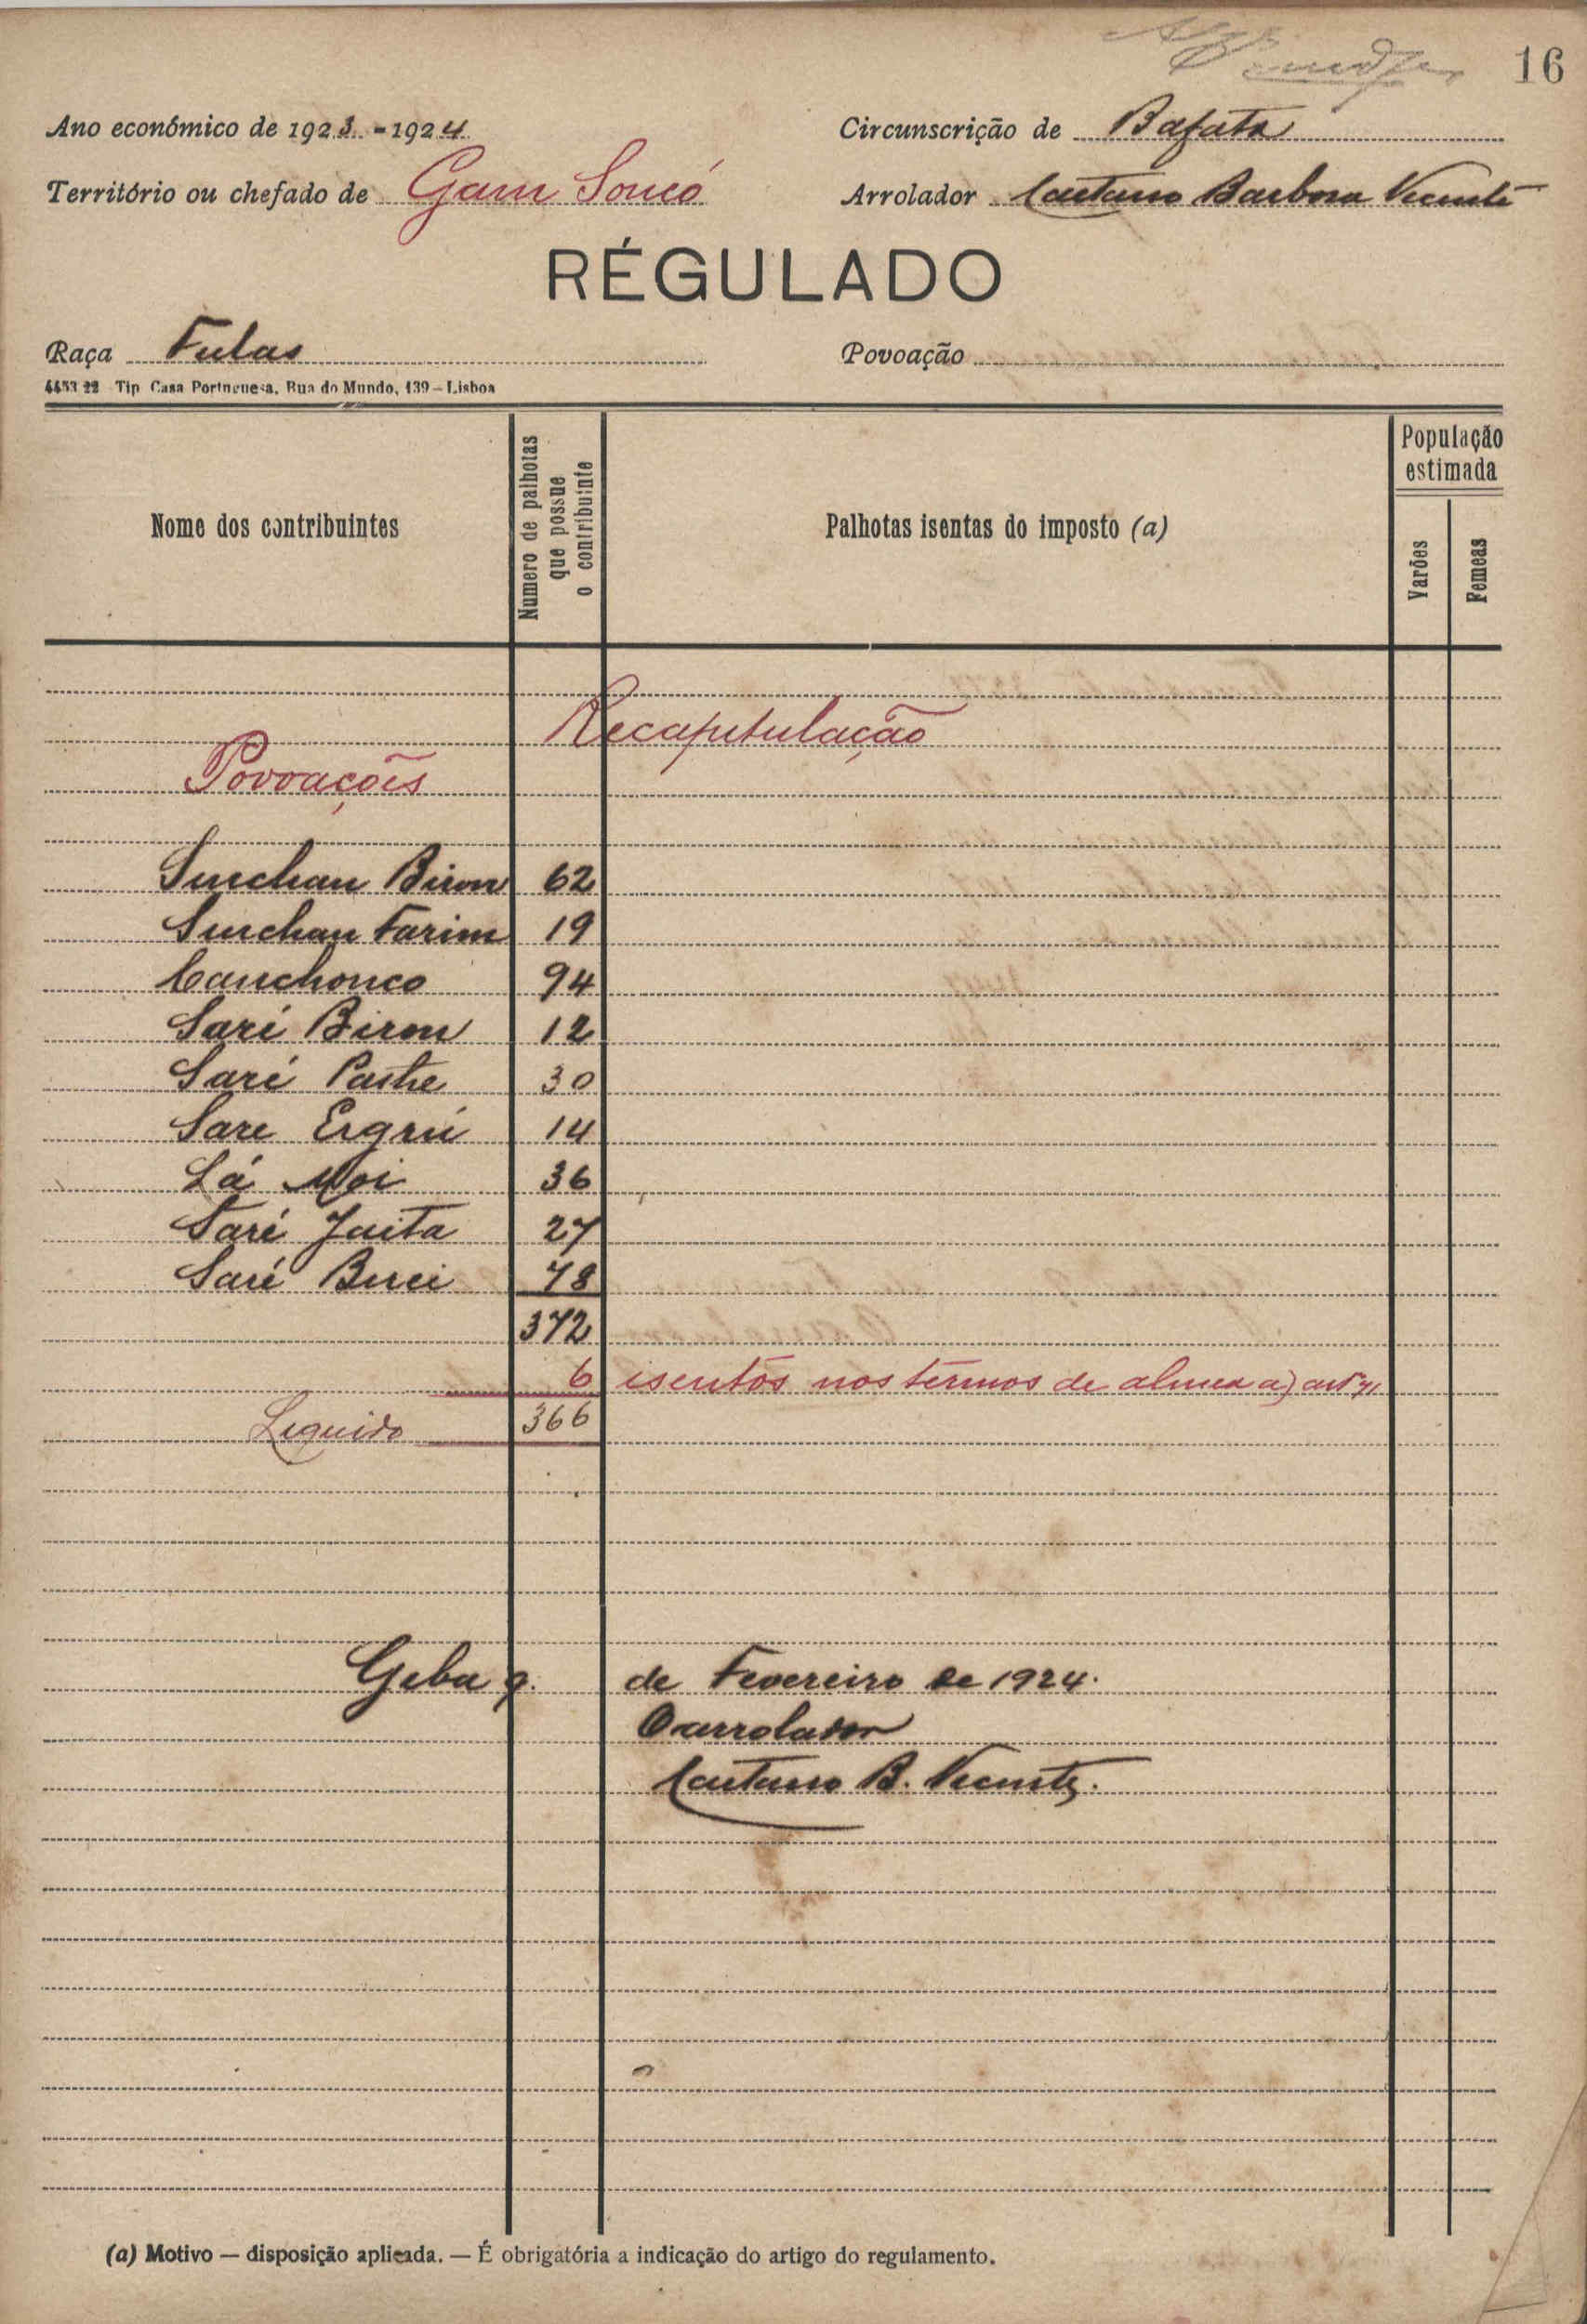 16
Ano económico de 1923 - 1924
Circunscrição de Bafata
Território ou chefado de Gam Soncó
Arrolador Caetano Barbosa Vicente
RÉGULADO
Raça Fulas
Povoação
4453 22 Tip Casa Portuguesa, Rua do Mundo, 139 – Lisboa
Nome dos contribuintes
Numero de palhotas que possue o contribuinte
Palhotas isentas do imposto (a)
População estimada
Varões
Femeas
Recapitulação
Povoações
Sinchan Biron 62
Sinchan Farim 19
Canchonco 94
Saré Biron 12
Saré 30
Sare 14
Lá Moi 36
Saré Jaita 27
Saré 78
372
6 isentos nos termos de alinea a) art.
Liquido 366
Geba 9. de Fevereiro de 1924.
O arrolador
Caetano B. Vicente.
(a) Motivo — disposição aplicada. — É obrigatória a indicação do artigo do regulamento.